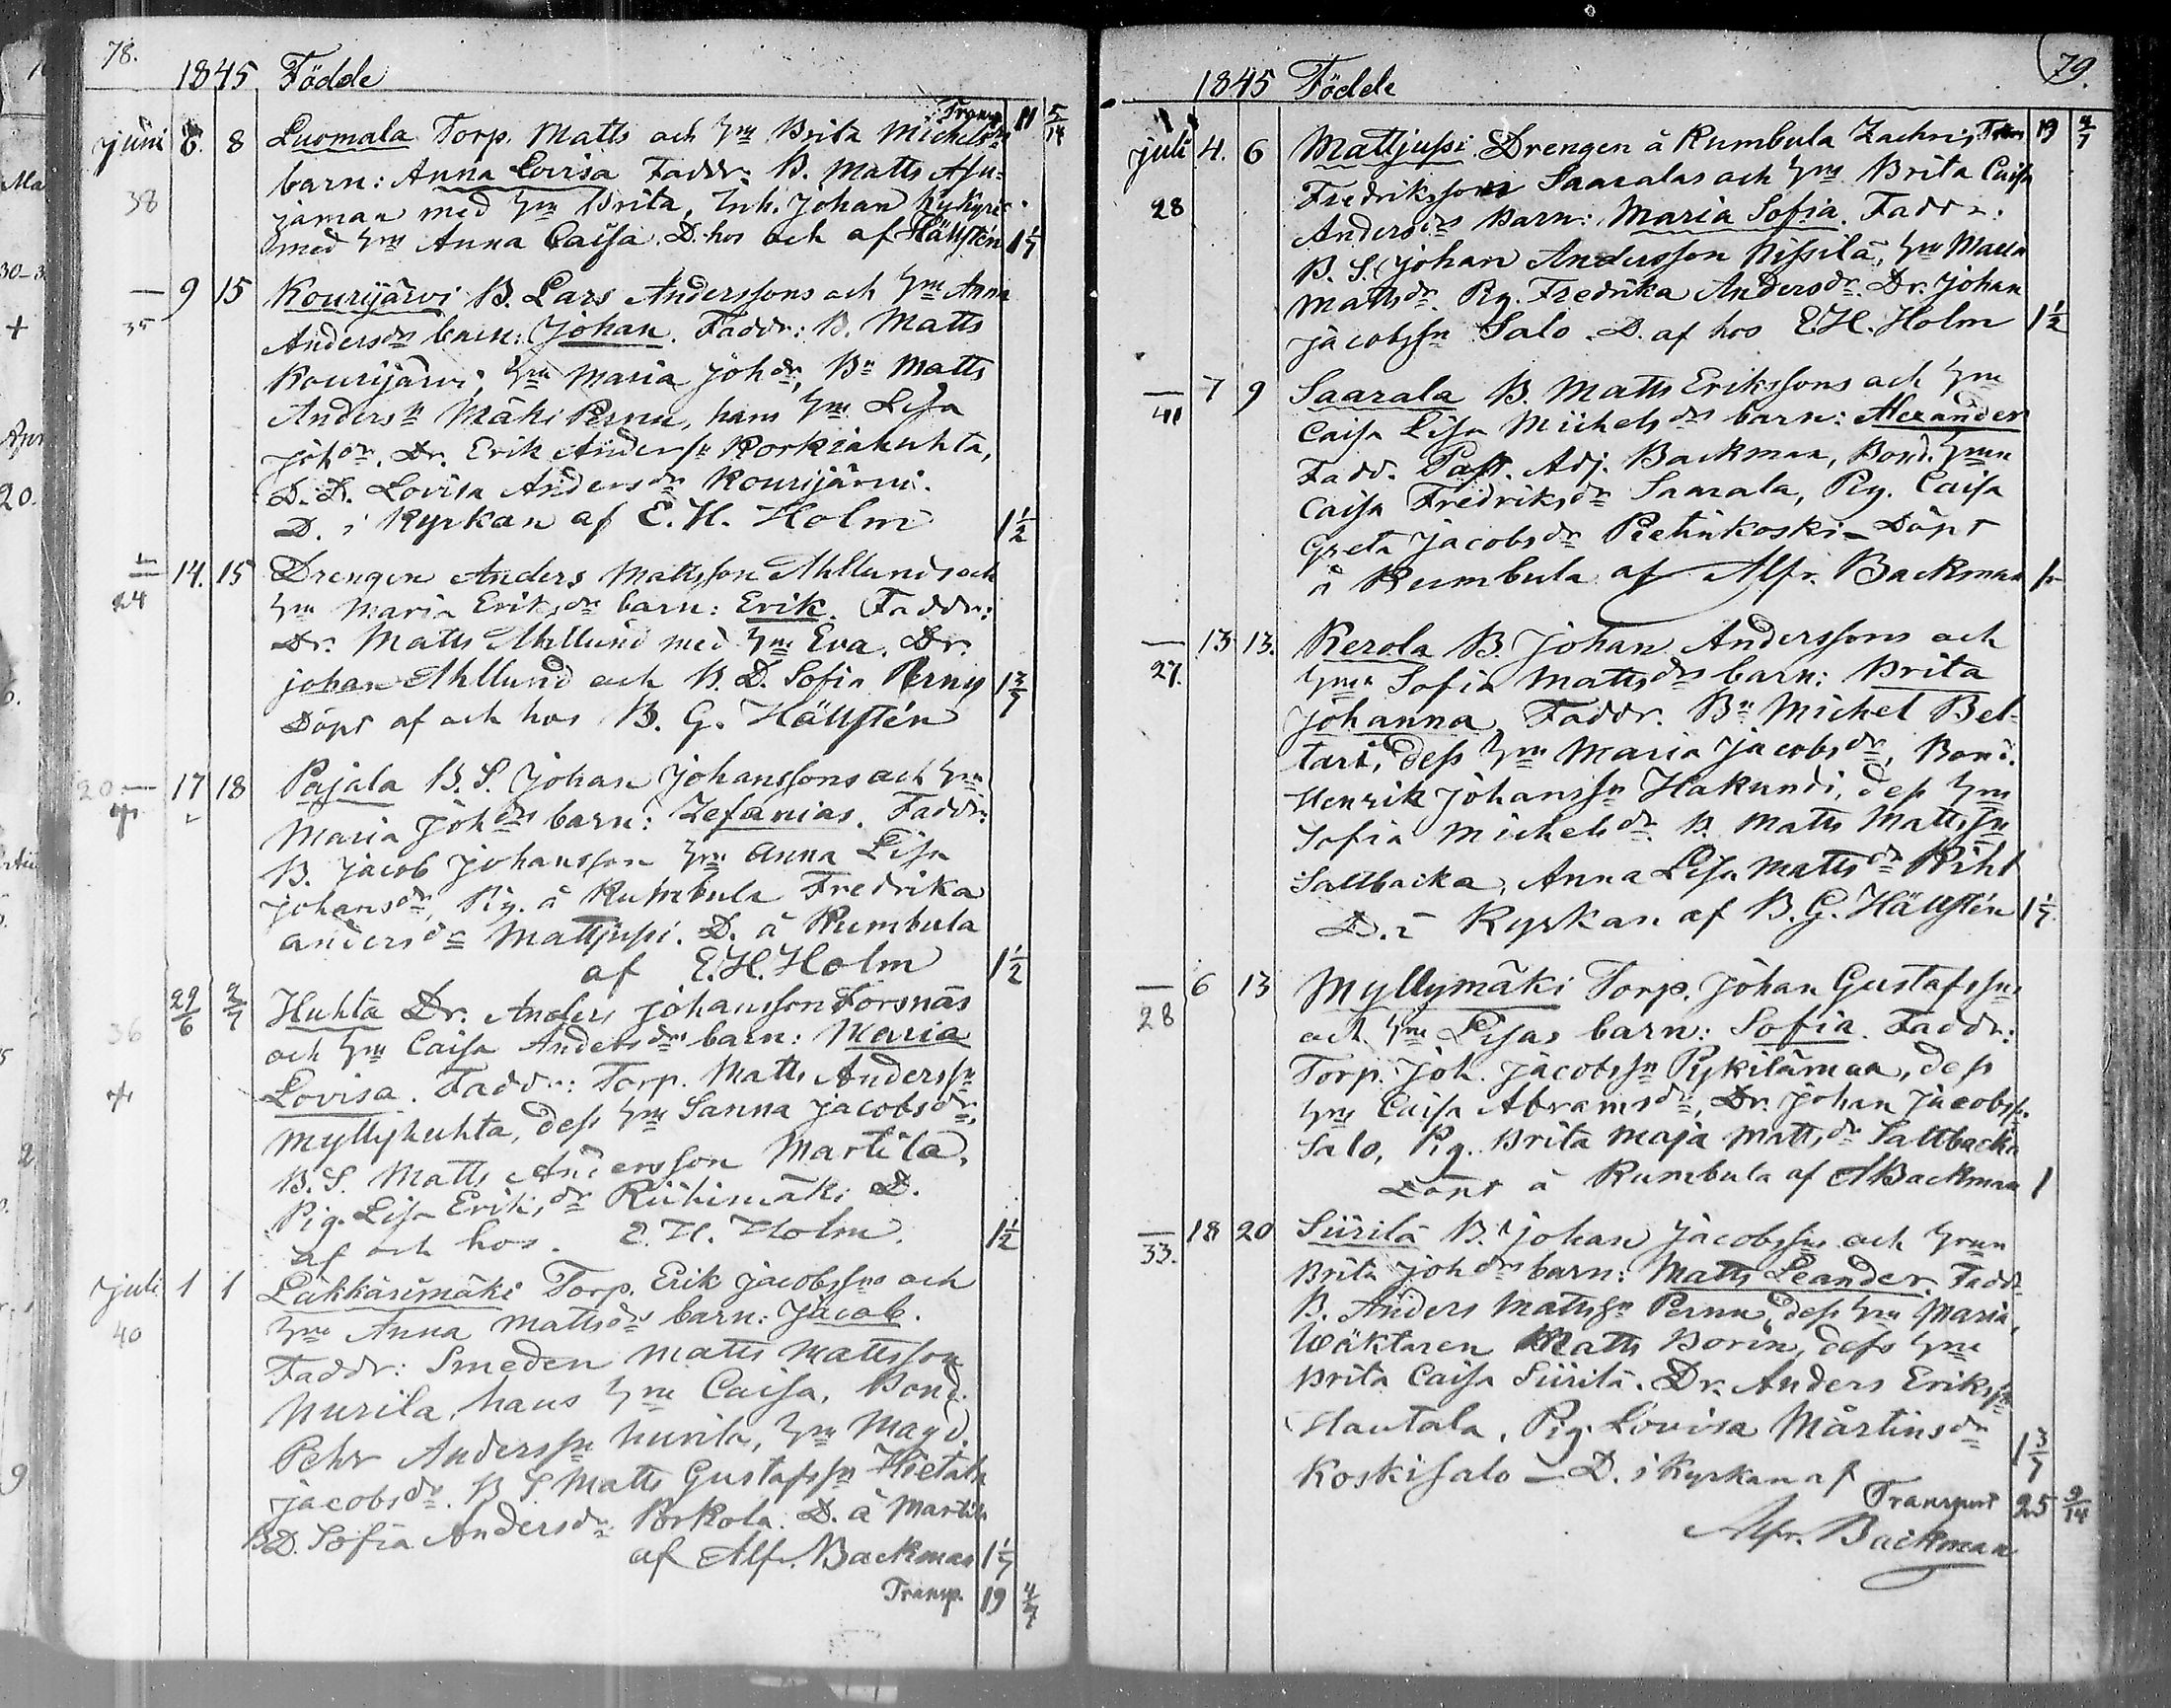 78.
1845 Födde
Transp. 11 5/14
Juni 6. 8 Luomala Torp. Matts och hm Brita Michelsdrs
38 barn: Anna Lovisa Faddr: B. Matts Asu-
jamaa med hm Brita, Inh. Johan
med hm Anna Caisa. D. hos och af Hällstén 1 1/7
— 9 15 Kourijärvi B. Lars Anderssons och hm Anna
35 Andersdrs barn: Johan. Faddr: B. Matts
Kourijärvi, hm Maria Johdr, Bn Matts
Anderssn Mäki Pernu, hans hm Lisa
Johdr. Dr. Erik Anderssn Korkiakuhta,
D. D. Lovisa Andersdr Kourijärvi.
D. i Kyrkan af E. H. Holm 1 1/2
— 14. 15 Drengen Anders Mattsson Ahllunds och
24 hm Maria Eriksdrs barn: Erik. Faddr:
Dr. Matts Ahllund med hm Eva. Dr.
Johan Ahllund och B. D. Sofia Pernu 1 3/7
Döpt af och hos B. G. Hällstén
20 — 17 18 Pajala B. S. Johan Johanssons och hm
Maria Johdrs barn: Zefanias. Faddr:
B. Jacob Johansson hm Anna Lisa
Johansdr, Pig. å Rumbula Fredrika
Andersdr Mattjussi. D. å Rumbula
af E. H. Holm 1 1/2
29/6 2/7 Huhta Dr. Anders Johansson Forsnäs
36 och hm Caisa Andersdrs barn: Maria
Lovisa. Faddr: Torp. Matts Anderssn
Myllykuhta, dess hm Sanna Jacobsdr,
B. S. Matts Andersson Martila,
Pig. Lisa Eriksdr Riihimäki D.
af och hos. E. H. Holm. 1 1/2
Juli 1 1 Läkkärimäki Torp. Erik Jacobssns och
40 hm Anna Mattsdrs barn: Jacob.
Faddr: Smeden Matts Mattsson
Nurila, hans hm Caisa, Bond.
Pehr Anderssn Nurila, hm Magd.
Jacobsdr. B S Matts Gustafssn Hietala
BD. Sofia Andersdr Porkola. D. å Martila
af Alf. Backman 1 1/7
Transp. 19 4/7
79.
1845 Födde
Juli 4. 6 Mattjussi Drengen å Rumbula Zachris Trans 19 4/7
28 Fredriksson Saaralas och hm Brita Caisa
Andersdrs Barn: Maria Sofia. Faddr:
B. S. Johan Andersson Nissilä, hm Maria
Mattsdr. Pig. Fredrika Andersdr. Dr. Johan
Jacobssn Salo. D. af hos E. H. Holm 1 1/2
— 7 9 Saarala B. Matts Erikssons och hm
41 Caisa Lisa Michelsdrs barn: Alexander
Fadd. Past. Adj. Backman, Bond. hmn
Caisa Fredriksdr Saarala, Pig. Caisa
Greta Jacobsdr Pietinkoski — Döpt
å Rumbula af Alfr. Backman 1
— 13 13. Kerola B. Johan Anderssons och
27. hm Sofia Mattsdrs barn: Brita
Johanna, Faddr. Bn Michel Bel-
tari, dess hm Maria Jacobsdr, Bond.
Henrik Johanssn Hakundi, dess hm
Sofia Michelsdr. B. Matts Mattssn
Saltbacka, Anna Lisa Mattsdr Pihl
D. i Kyrkan af B. G. Hällstén 1 1/7
— 6 13 Myllymäki Torp. Johan Gustafssns
28 och hm Lisas barn: Sofia. Faddr:
Torp. Joh. Jacobssn Pykilämaa, dess
hm Caisa Abramsdr, Dr. Johan Jacobss.
Salo, Pig. Brita Maja Mattsdr Saltbacka
Döpt å Rumbula af ABackman 1
— 18 20 Siirilä B. Johan Jacobssns och hmn
33. Brita Johdrs barn: Matts Leander. Faddr
B. Anders Mattssn Pernu, dess hm Maria,
Wäktaren Matts Borin, dess hm
Brita Caisa Siirilä. Dr. Anders Erikssn
Hautala, Pig. Lovisa Mårtinsdr
Koskisalo — D. i Kyrkan af 1 3/7
Transport 25 9/14
Alfr. Backman